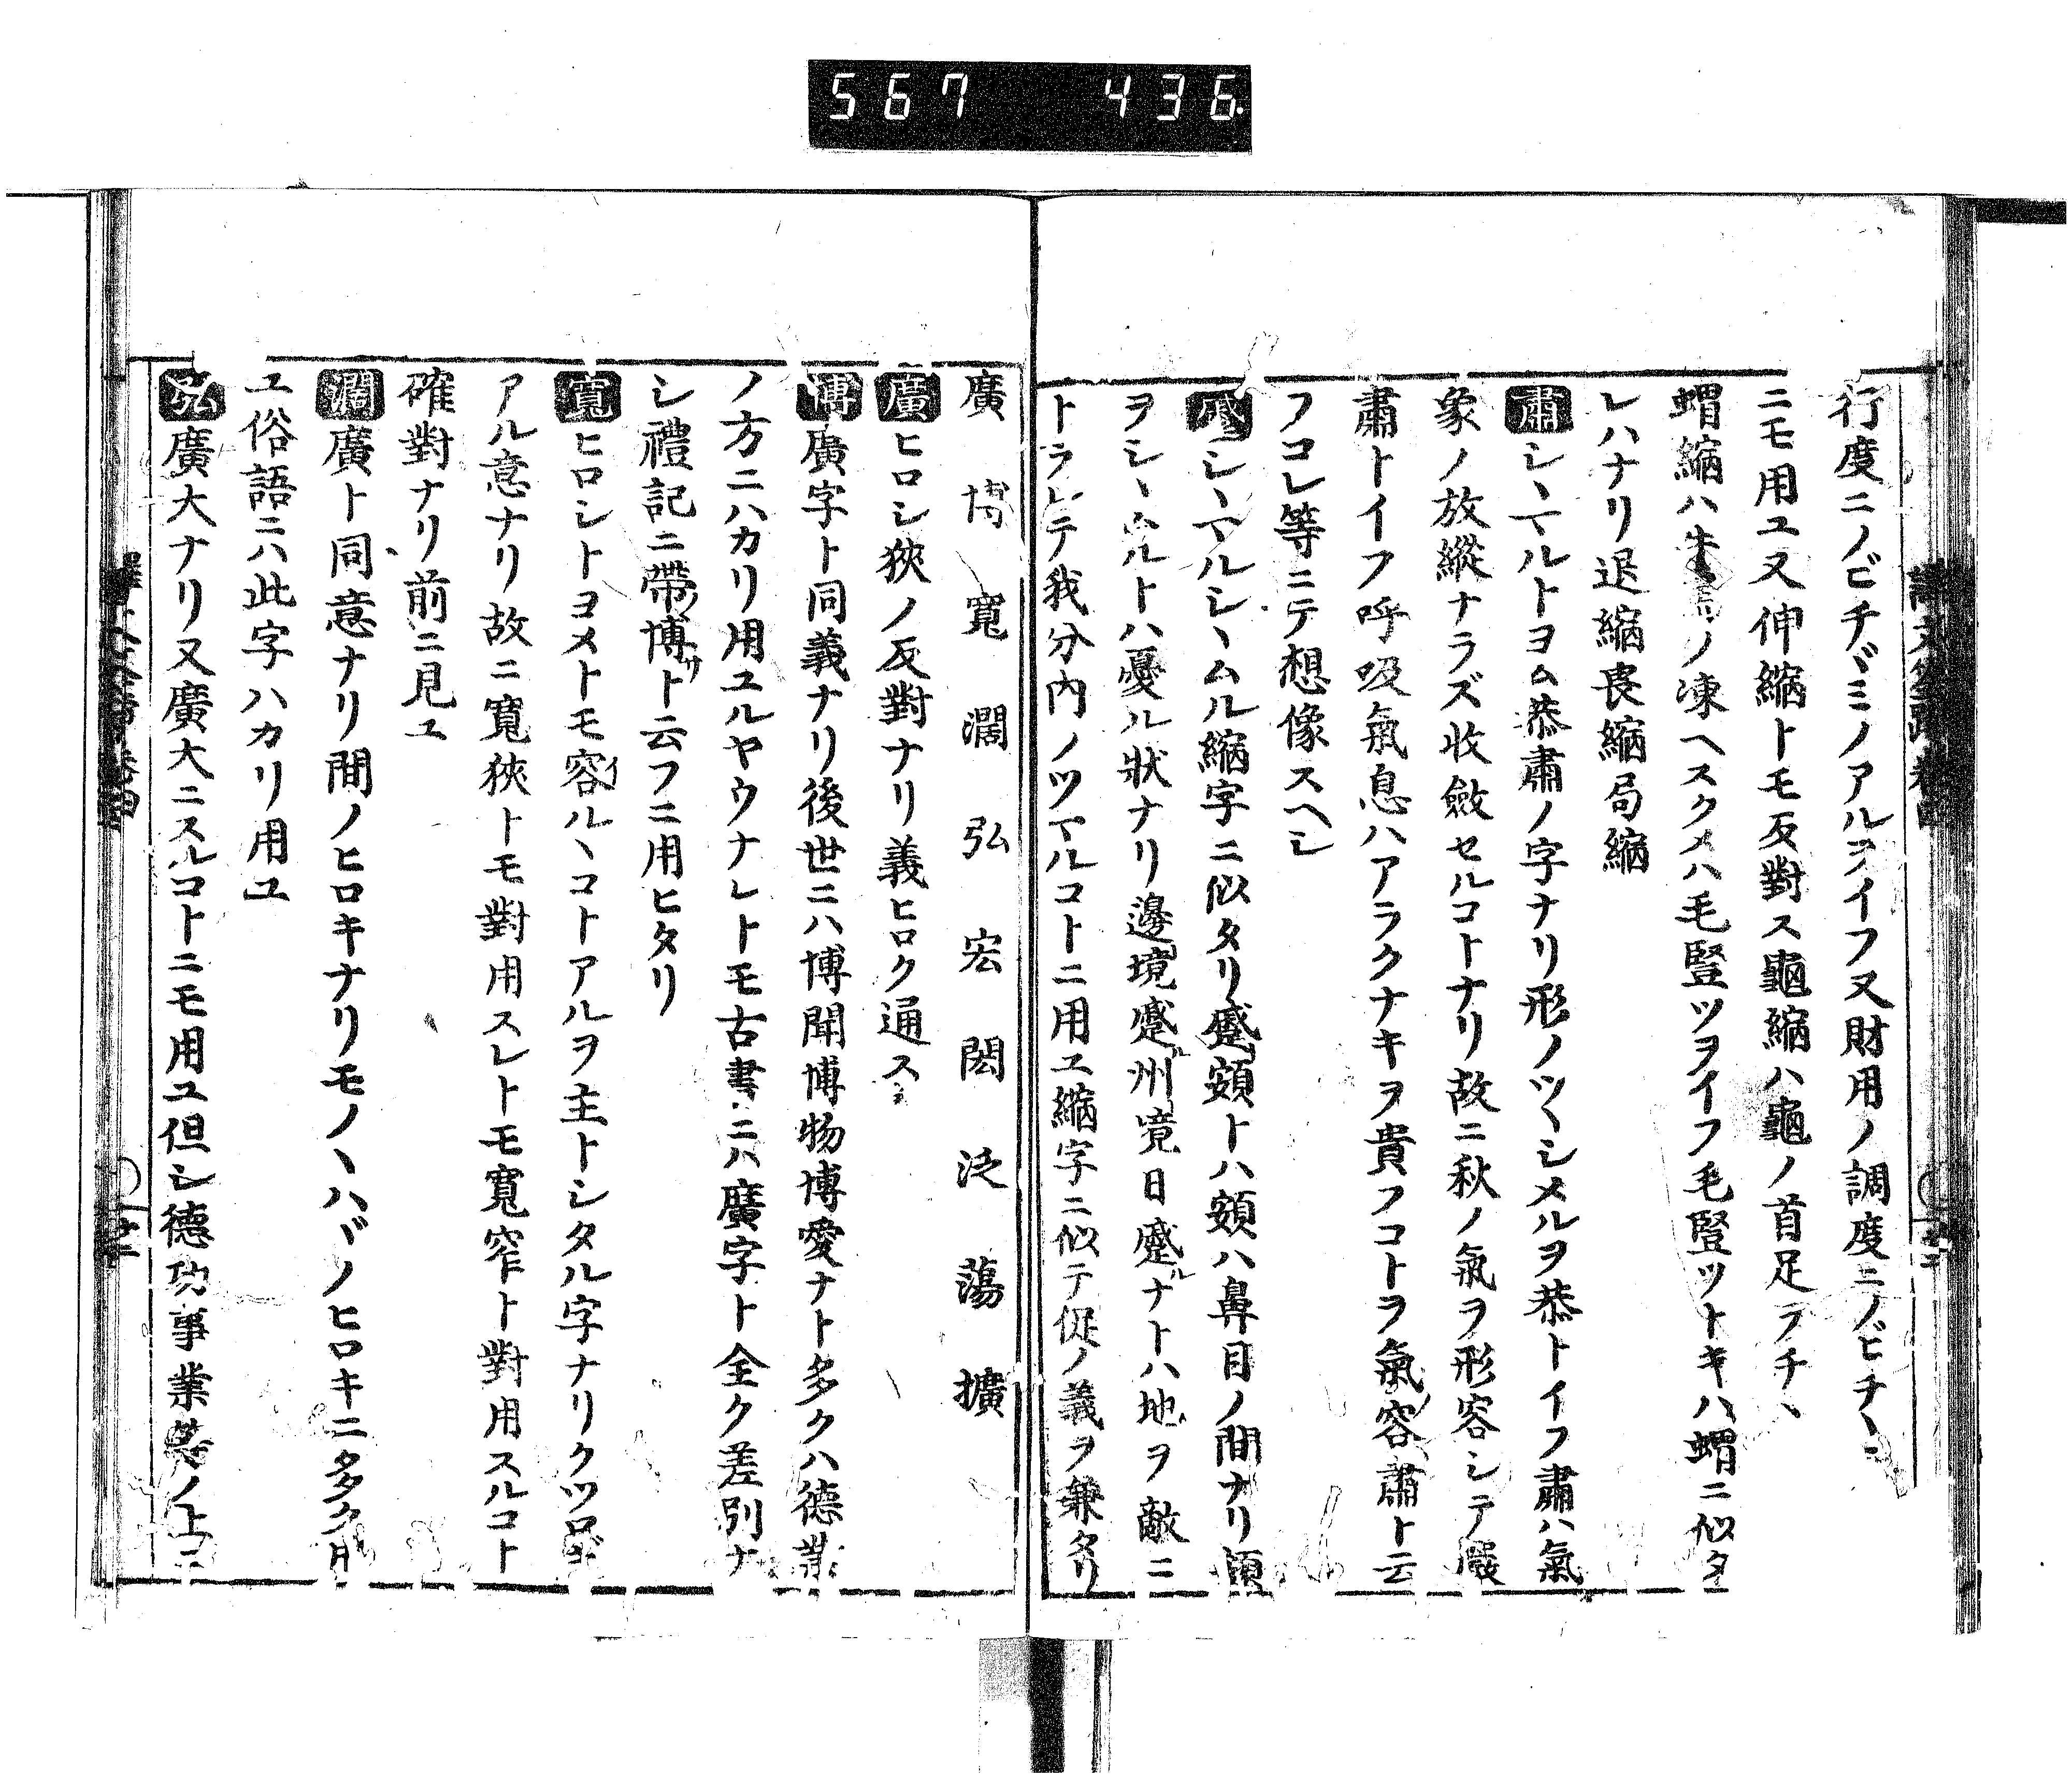 567 436
行度ニノビチヾミノアルヲイフ又財用ノ調度ニノビチヽ
ニモ用ユ又伸縮トモ反對ス龜縮ハ龜ノ首足ヲチヽ
蝟縮ハ牛ノ凍ヘスクメハ毛豎ツヲイフ毛豎ツトキハ蝟ニ似タ
レハナリ退縮畏縮局縮
肅シヽマルトヨム恭肅ノ字ナリ形ノツヽシメルヲ恭トイフ肅ハ氣
象ノ放縱ナラズ收斂セルコトナリ故ニ秋ノ氣ヲ形容シテ嚴
肅トイフ呼吸氣息ハアラクナキヲ貴フコトヲ氣容肅ト云
フコレ等ニテ想像スヘシ
蹙シヽマルシヽムル縮字ニ似タリ蹙頞トハ頞ハ鼻目ノ間ナリ頞
ヲシヽムルトハ憂ル狀ナリ邊境蹙州境日蹙ナトハ地ヲ敵ニ
トラレテ我分內ノツマルコトニ用ユ縮字ニ似テ促ノ義ヲ兼タリ
廣 博 寬 濶 弘 宏 閎 泛 蕩 擴
廣ヒロシ狹ノ反對ナリ義ヒロク通ス
博廣字ト同義ナリ後世ニハ博聞博物博愛ナト多クハ德業
ノ方ニハカリ用ユルヤウナレトモ古書ニハ廣字ト全ク差別ナ
シ禮記ニ帶ノ博サト云フニ用ヒタリ
寬ヒロシトヨメトモ容イルヽコトアルヲ主トシタル字ナリクツロギ
アル意ナリ故ニ寬狹トモ對用スレトモ寬窄ト對用スルコト
確對ナリ前ニ見ユ
濶廣ト同意ナリ間ノヒロキナリモノヽハヾノヒロキニ多ク用
ユ俗語ニハ此字ハカリ用ユ
弘廣大ナリ又廣大ニスルコトニモ用ユ但シ德功事業等ノ上ニ